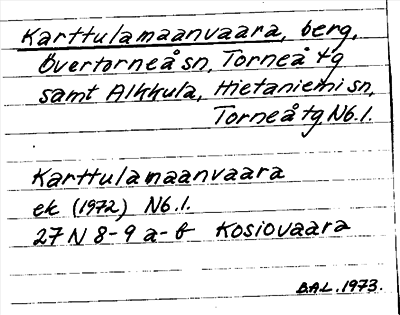 Karttulamaanvaara, berg,
Övertorneå sn, Torneå tg
samt Alkkula, Hietaniemi sn,
Torneå tg Nb.l.
Karttulamaanvaara
ek (1972) Nb.l.
27 N 8-9 a-b Kosiovaara
B.A.L. 1973.